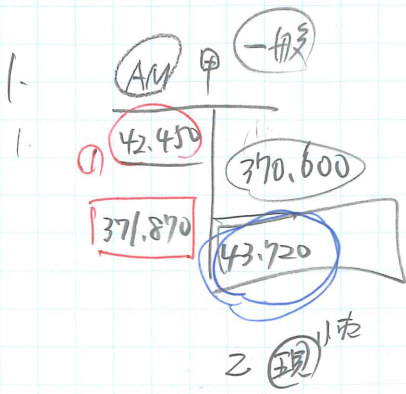 1.
AM 甲 一般
1.
① 42.450
370.600
371.870
43.720
乙 現